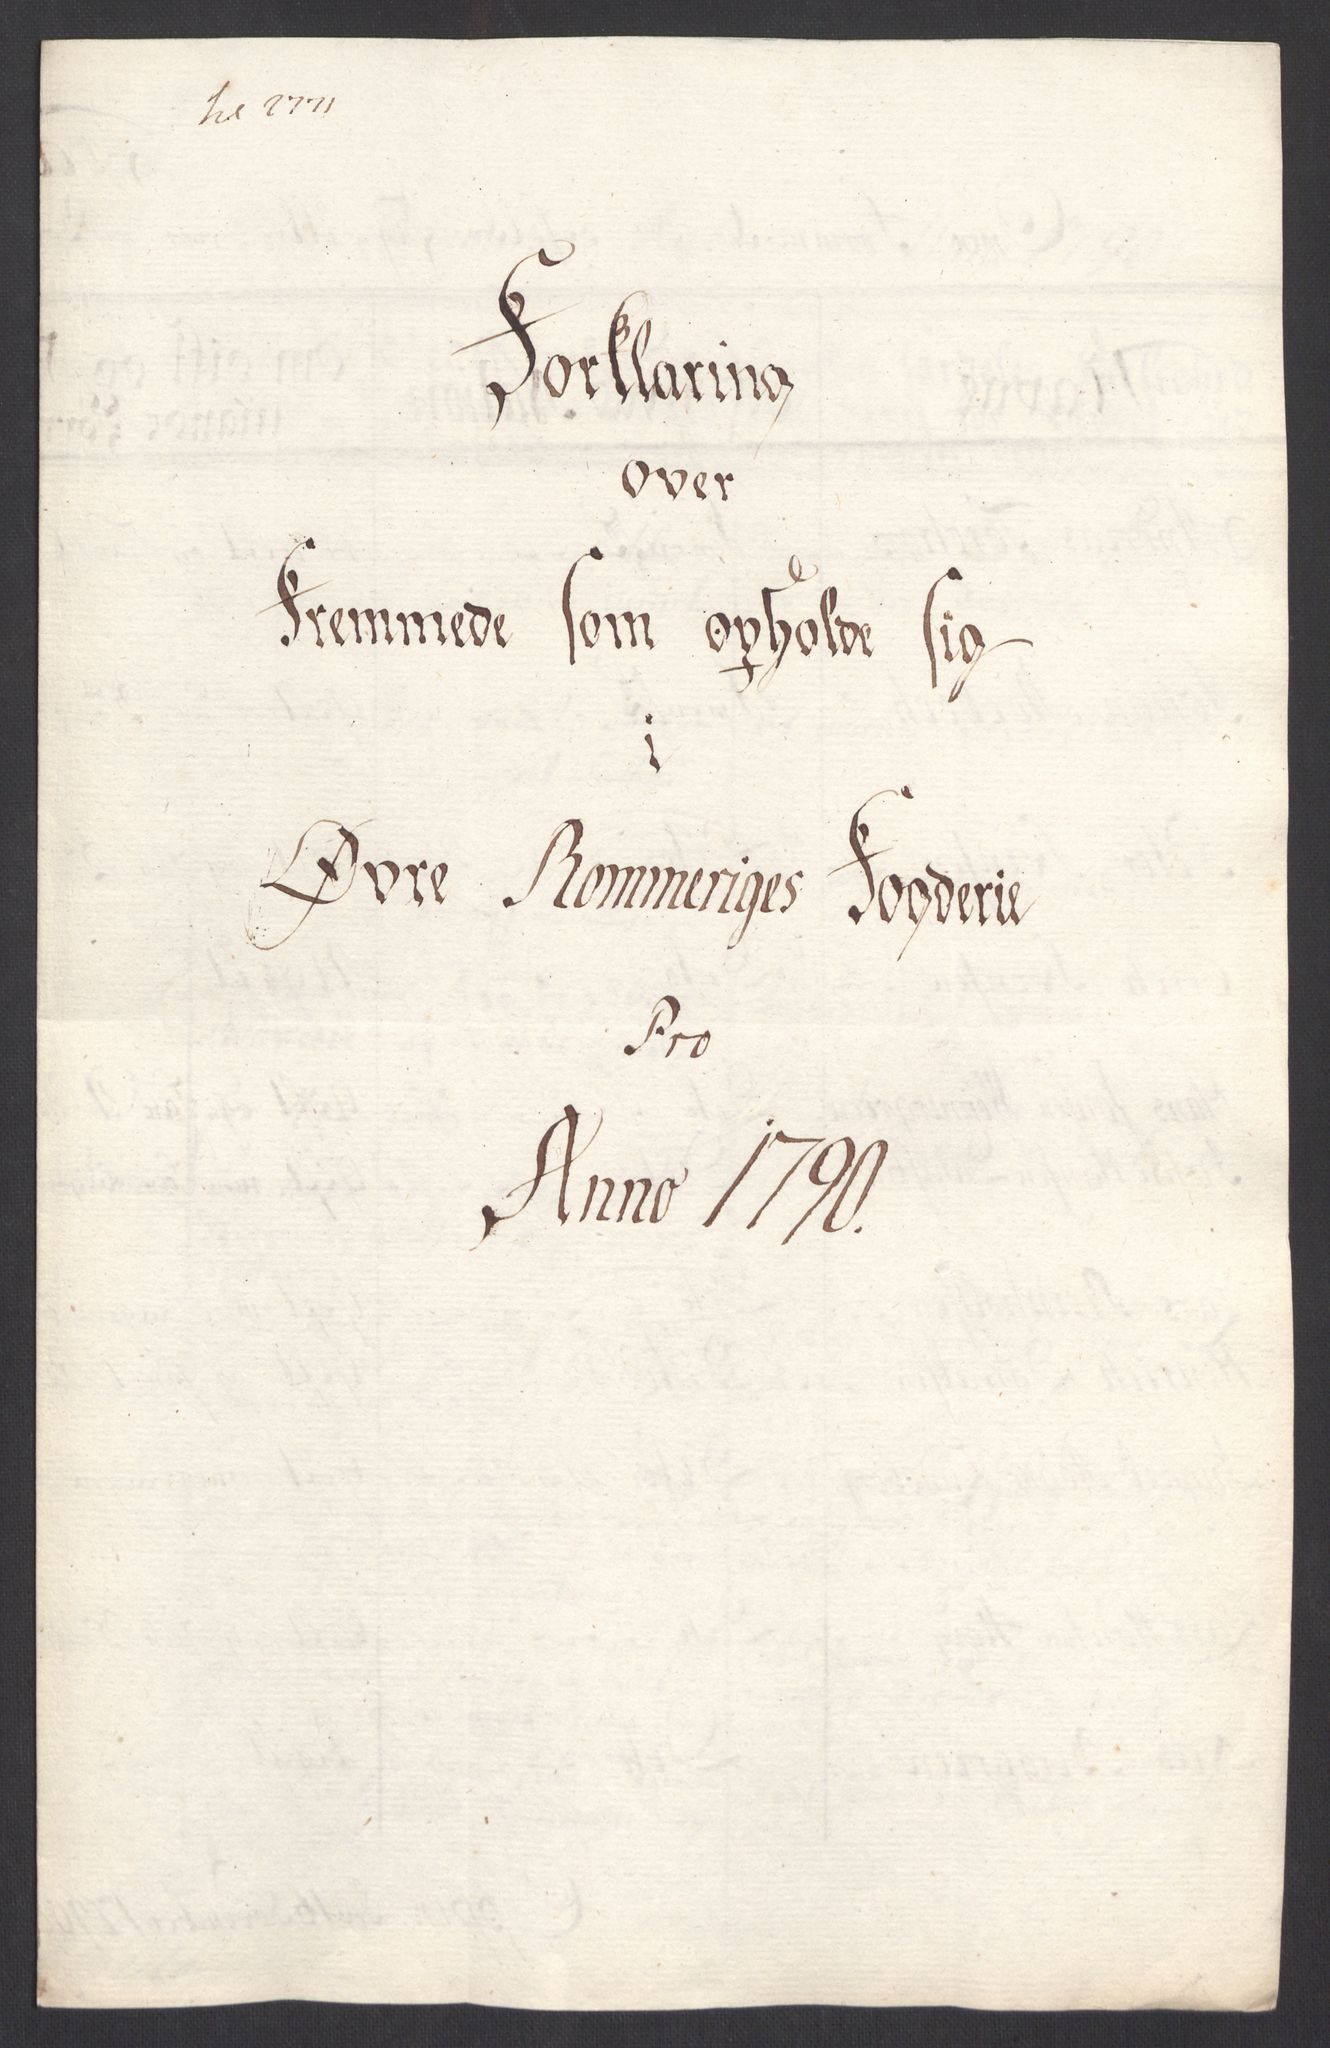 Forklaring
over
Fremmede som opholde sig
i
Øvre Rommeriges Fogderie
Pro
Anno 1790.